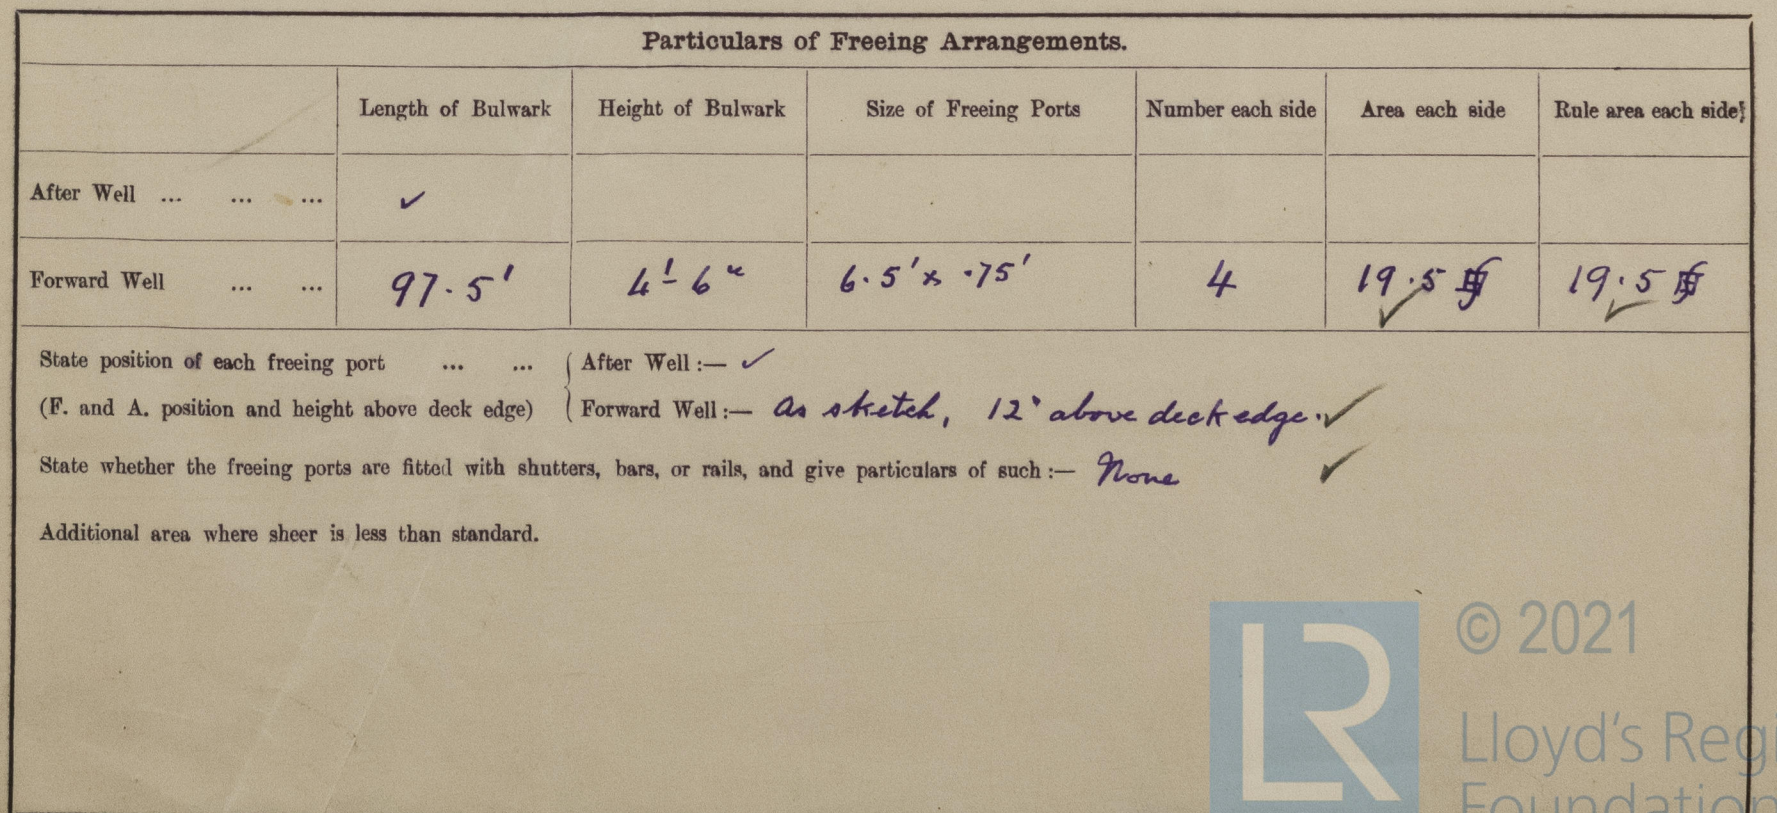 Particulars of Freeing Arrangements.
Length of Bulwark Height of Bulwark Size of Freeing Ports Number each side Area each side Rule area each side
After Well ... ... ... ✓
Forward Well ... ... 97.5' 4'-6" 6.5' x .75' 4 19.5 19.5
State position of each freeing port ... ... After Well :— ✓
(F. and A. position and height above deck edge) Forward Well :— As sketch, 12" above deck edge. ✓
State whether the freeing ports are fitted with shutters, bars, or rails, and give particulars of such :— None ✓
Additional area where sheer is less than standard.
© 2021
LR
Lloyd's Regi
Foundation